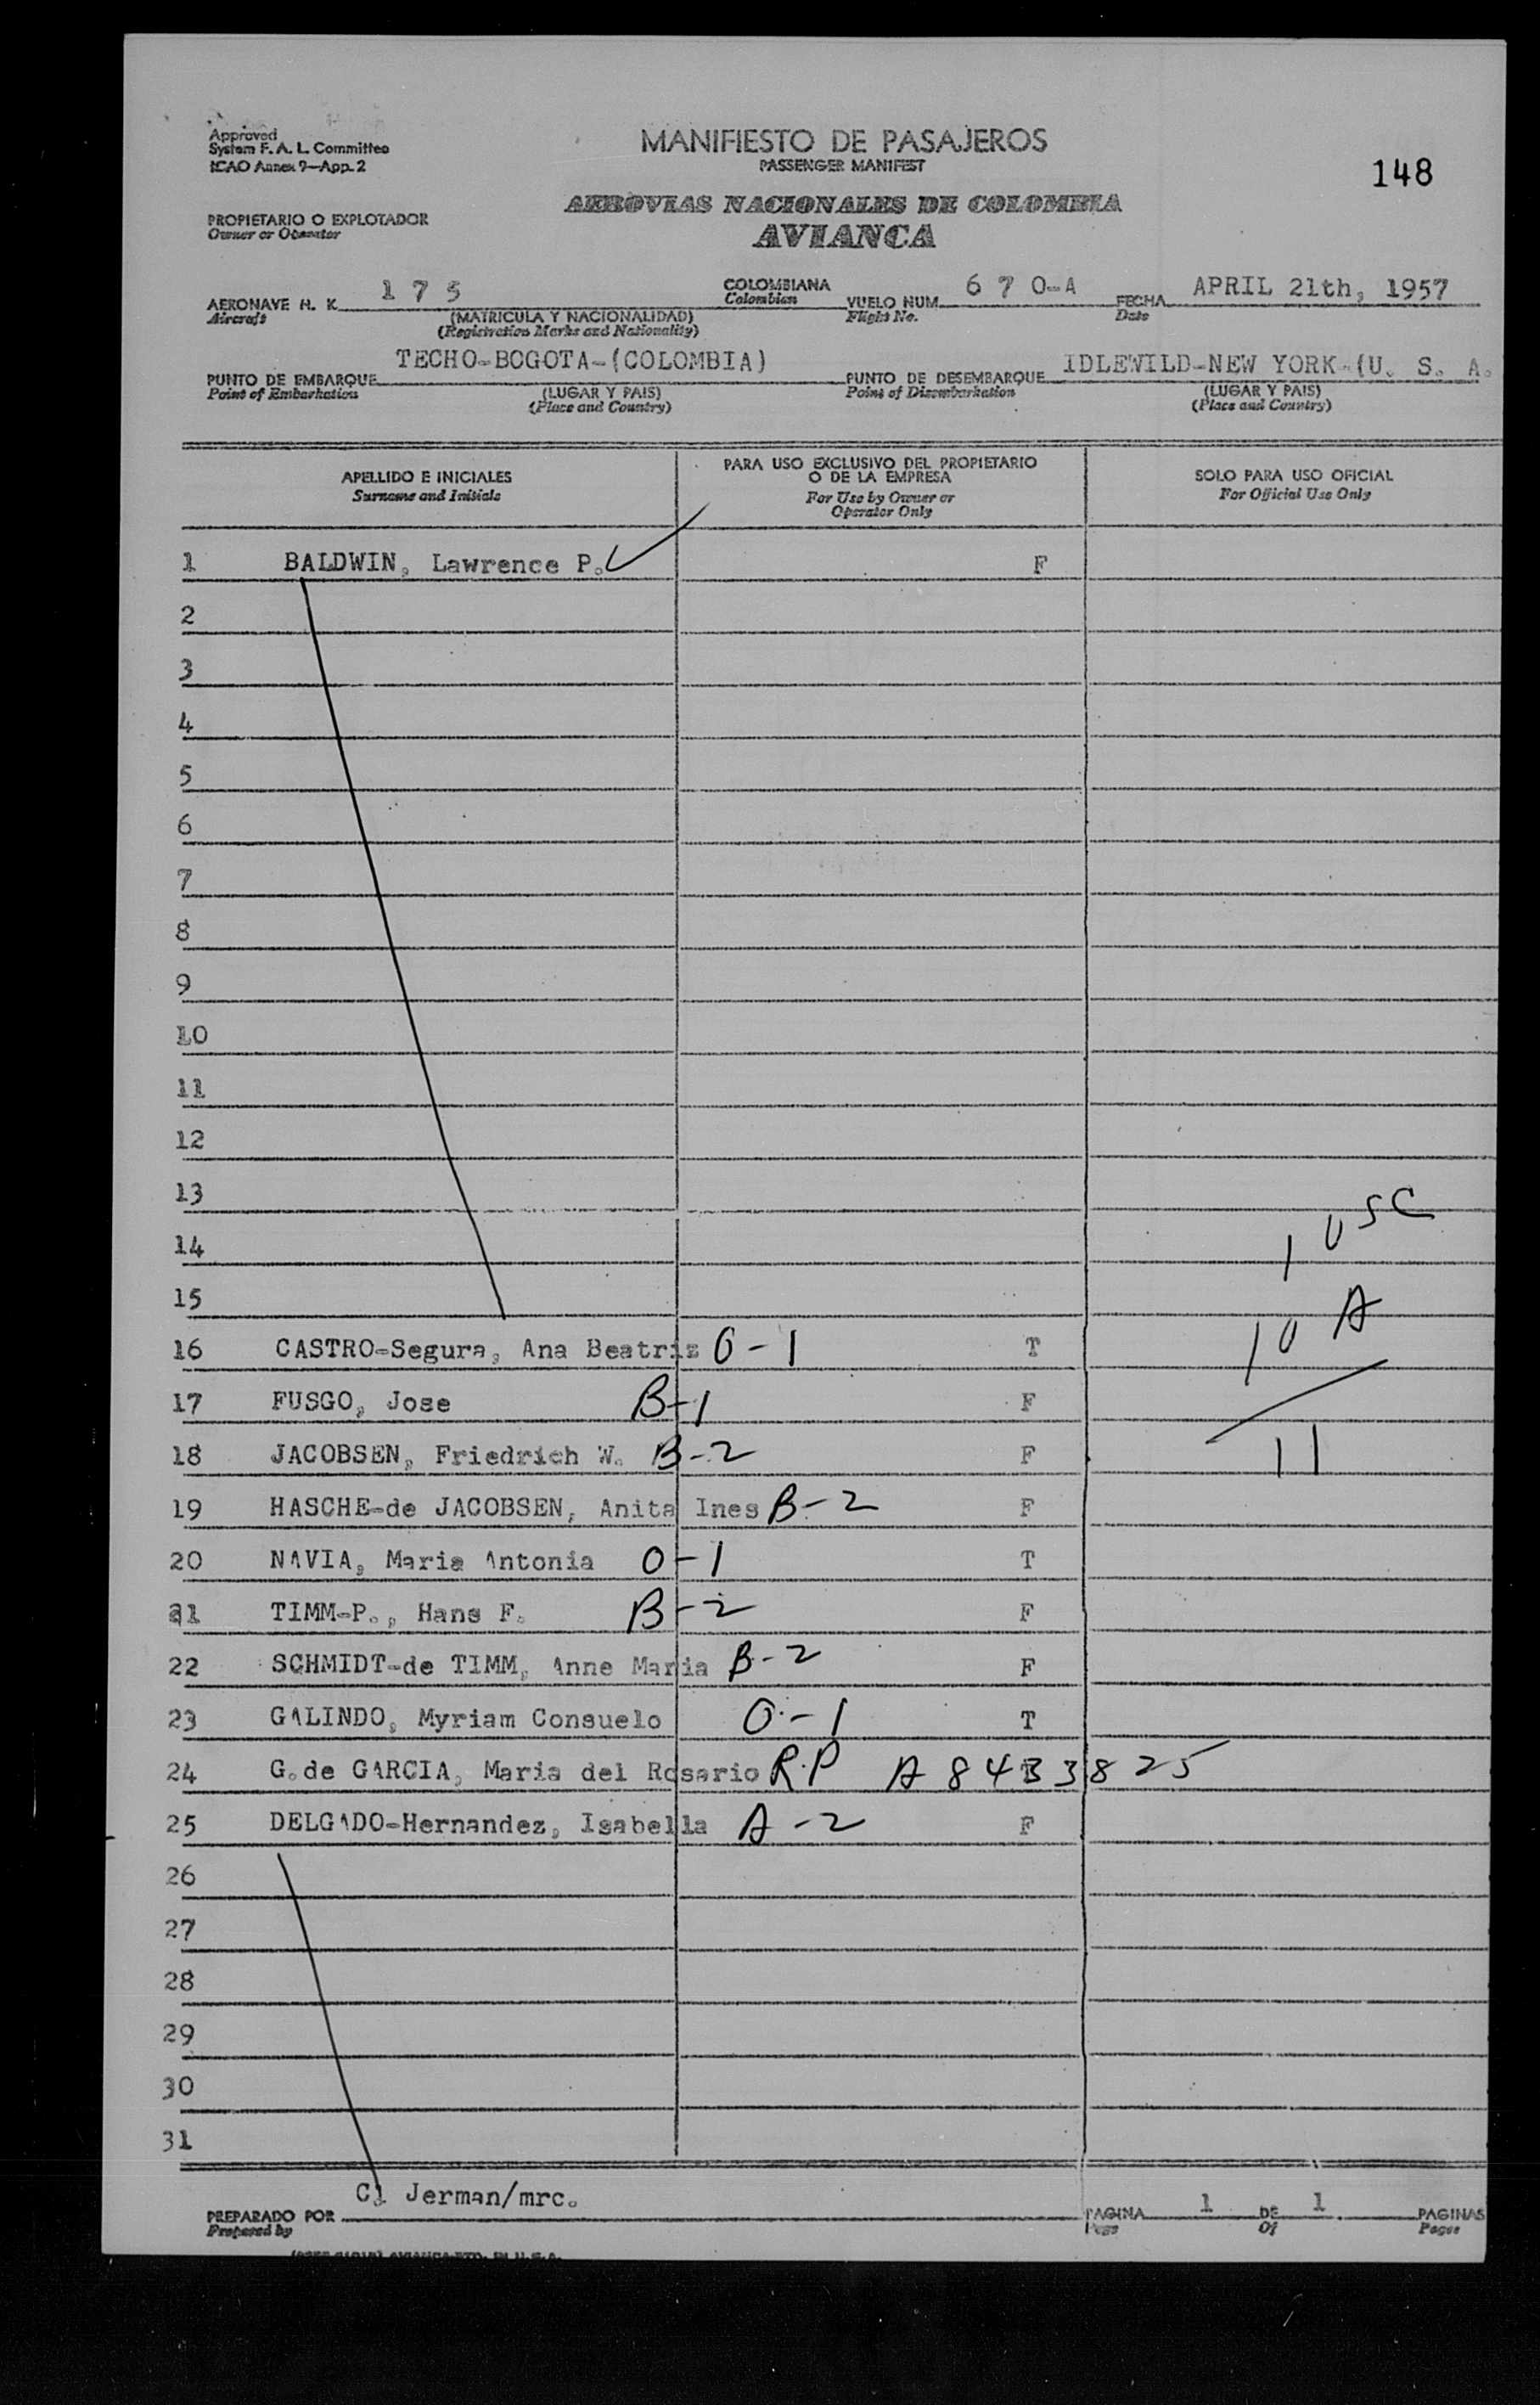 Approved
System F. A. L. Committee
ICAO Annex 9—App. 2
MANIFIESTO DE PASAJEROS
PASSENGER MANIFEST
148
AEROVIAS NACIONALES DE COLOMBIA
AVIANCA
PROPIETARIO O EXPLOTADOR
Owner or Operator
AERONAVE H. K. 175 COLOMBIANA VUELO NUM. 670-A FECHA APRIL 21th, 1957
Aircraft (MATRICULA Y NACIONALIDAD) Colombian Flight No. Date
(Registration Marks and Nationality)
PUNTO DE EMBARQUE TECHO-BOGOTA-(COLOMBIA) PUNTO DE DESEMBARQUE IDLEWILD-NEW YORK-(U. S. A.
Point of Embarkation (LUGAR Y PAIS) Point of Disembarkation (LUGAR Y PAIS)
(Place and Country) (Place and Country)
APELLIDO E INICIALES PARA USO EXCLUSIVO DEL PROPIETARIO O DE LA EMPRESA SOLO PARA USO OFICIAL
Surname and Initials For Use by Owner or Operator Only For Official Use Only
1 BALDWIN, Lawrence P. F
2
3
4
5
6
7
8
9
10
11
12
13
14 1 USC
15
16 CASTRO-Segura, Ana Beatriz O-1 T 10 A
17 FUSGO, Jose B-1 F
18 JACOBSEN, Friedrich W. B-2 F 11
19 HASCHE-de JACOBSEN, Anita Ines B-2 F
20 NAVIA, Maria Antonia O-1 T
21 TIMM-P., Hans F. B-2 F
22 SCHMIDT-de TIMM, Anne Maria B-2 F
23 GALINDO, Myriam Consuelo O-1 T
24 G.de GARCIA, Maria del Rosario R.P A8433825
25 DELGADO-Hernandez, Isabella A-2 F
26
27
28
29
30
31
PREPARADO POR C. Jerman/mrc. PAGINA 1 DE 1 PAGINAS
Prepared by Page Of Pages